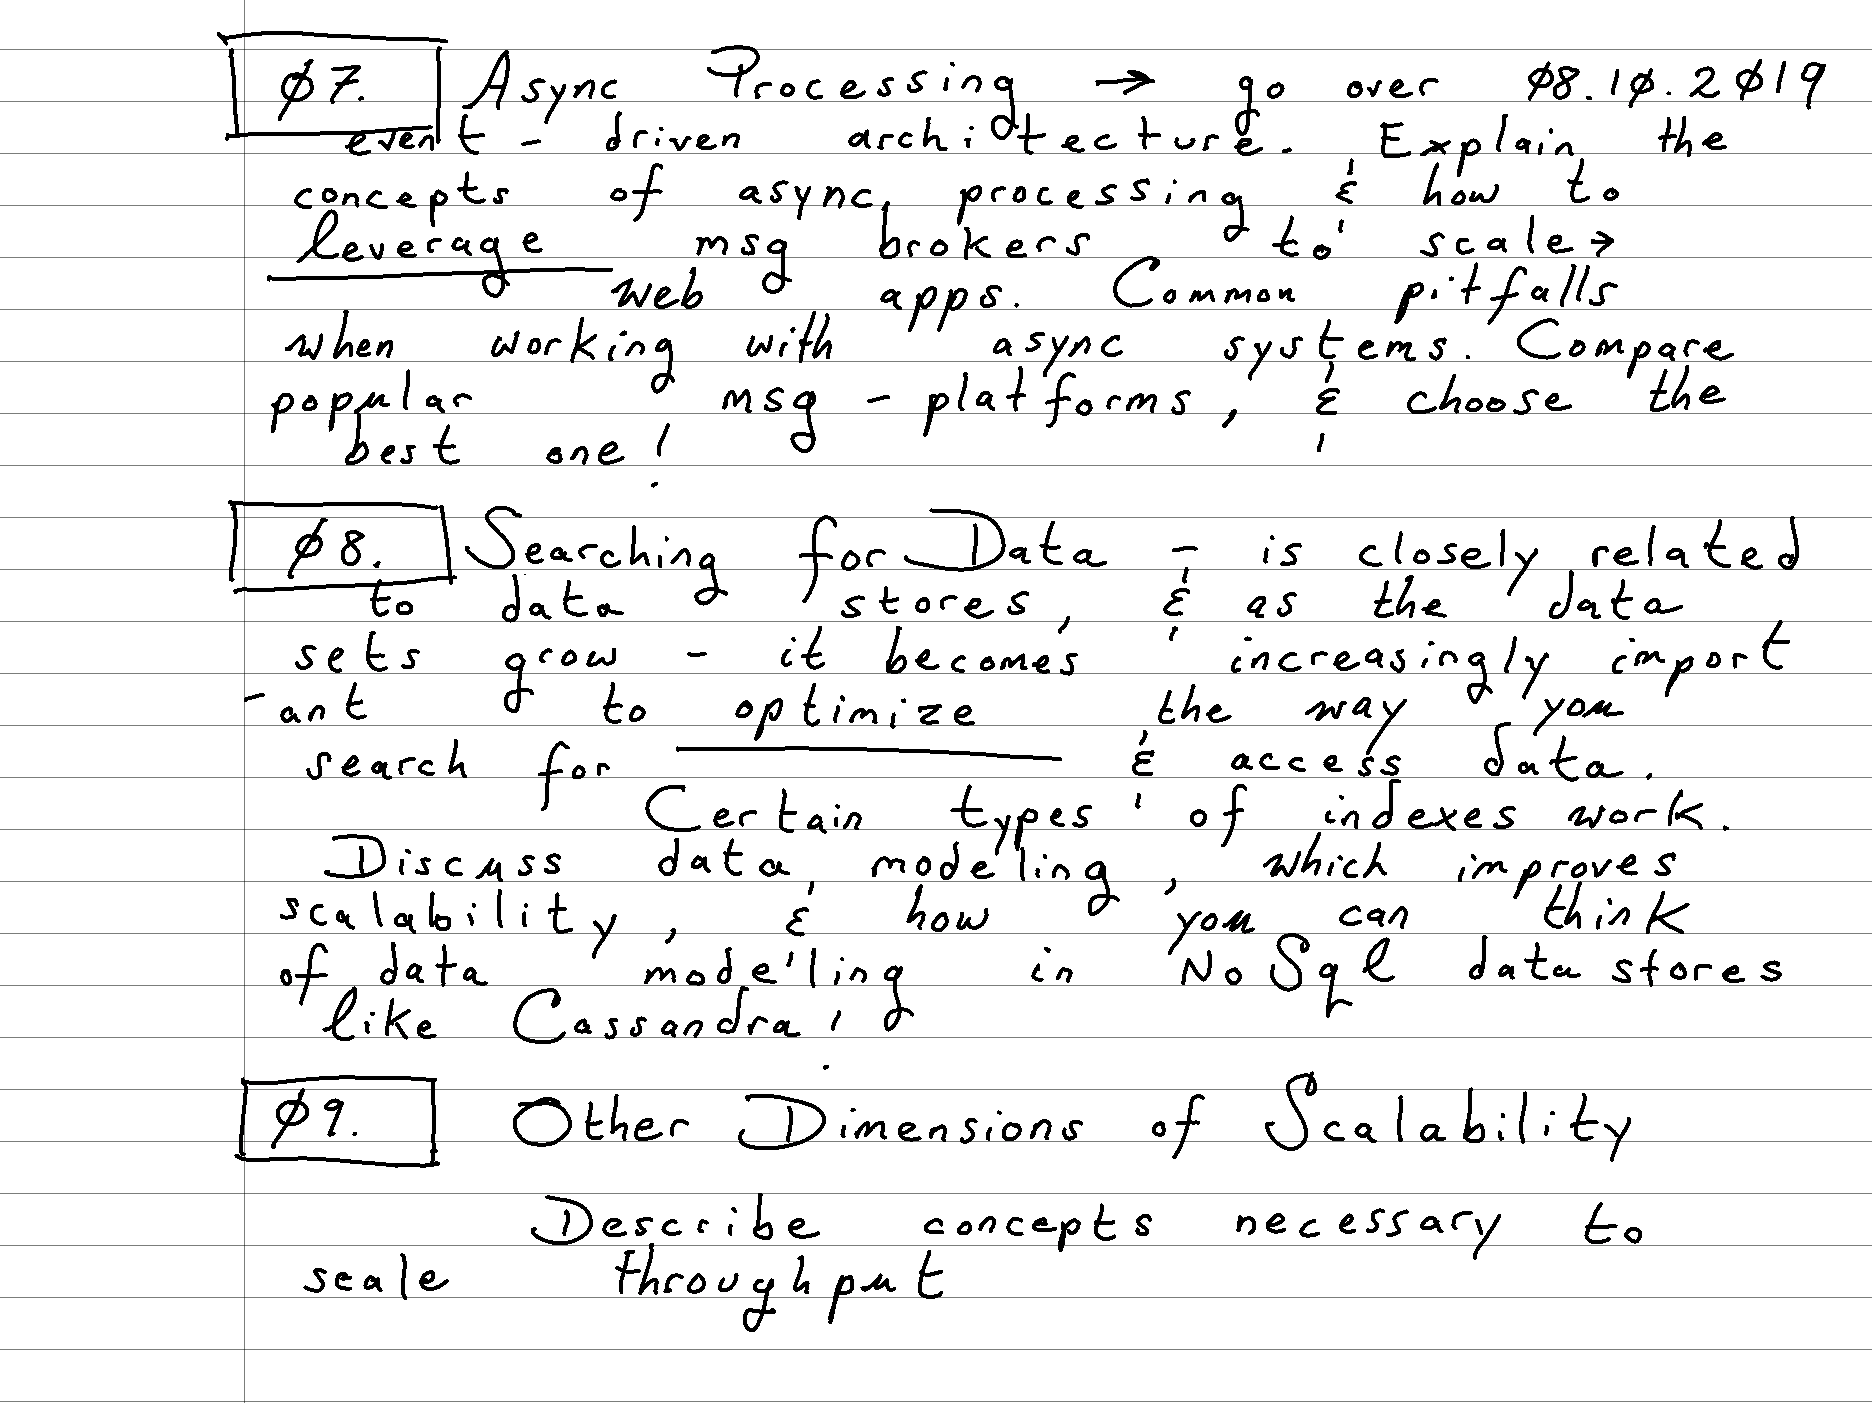 Ø7. Async Processing → go over Ø8.1Ø.2Ø19
event - driven architecture. Explain the
concepts of async processing & how to
leverage msg brokers to scale →
web apps. Common pitfalls
when working with async systems. Compare
popular msg - platforms, & choose the
best one!
Ø8. Searching for Data - is closely related
to data stores, & as the data
sets grow - it becomes increasingly import
-ant to optimize the way you
search for & access data.
Certain types of indexes work.
Discuss data modeling, which improves
scalability, & how you can think
of data modeling in NoSql data stores
like Cassandra!
Ø9. Other Dimensions of Scalability
Describe concepts necessary to
scale throughput